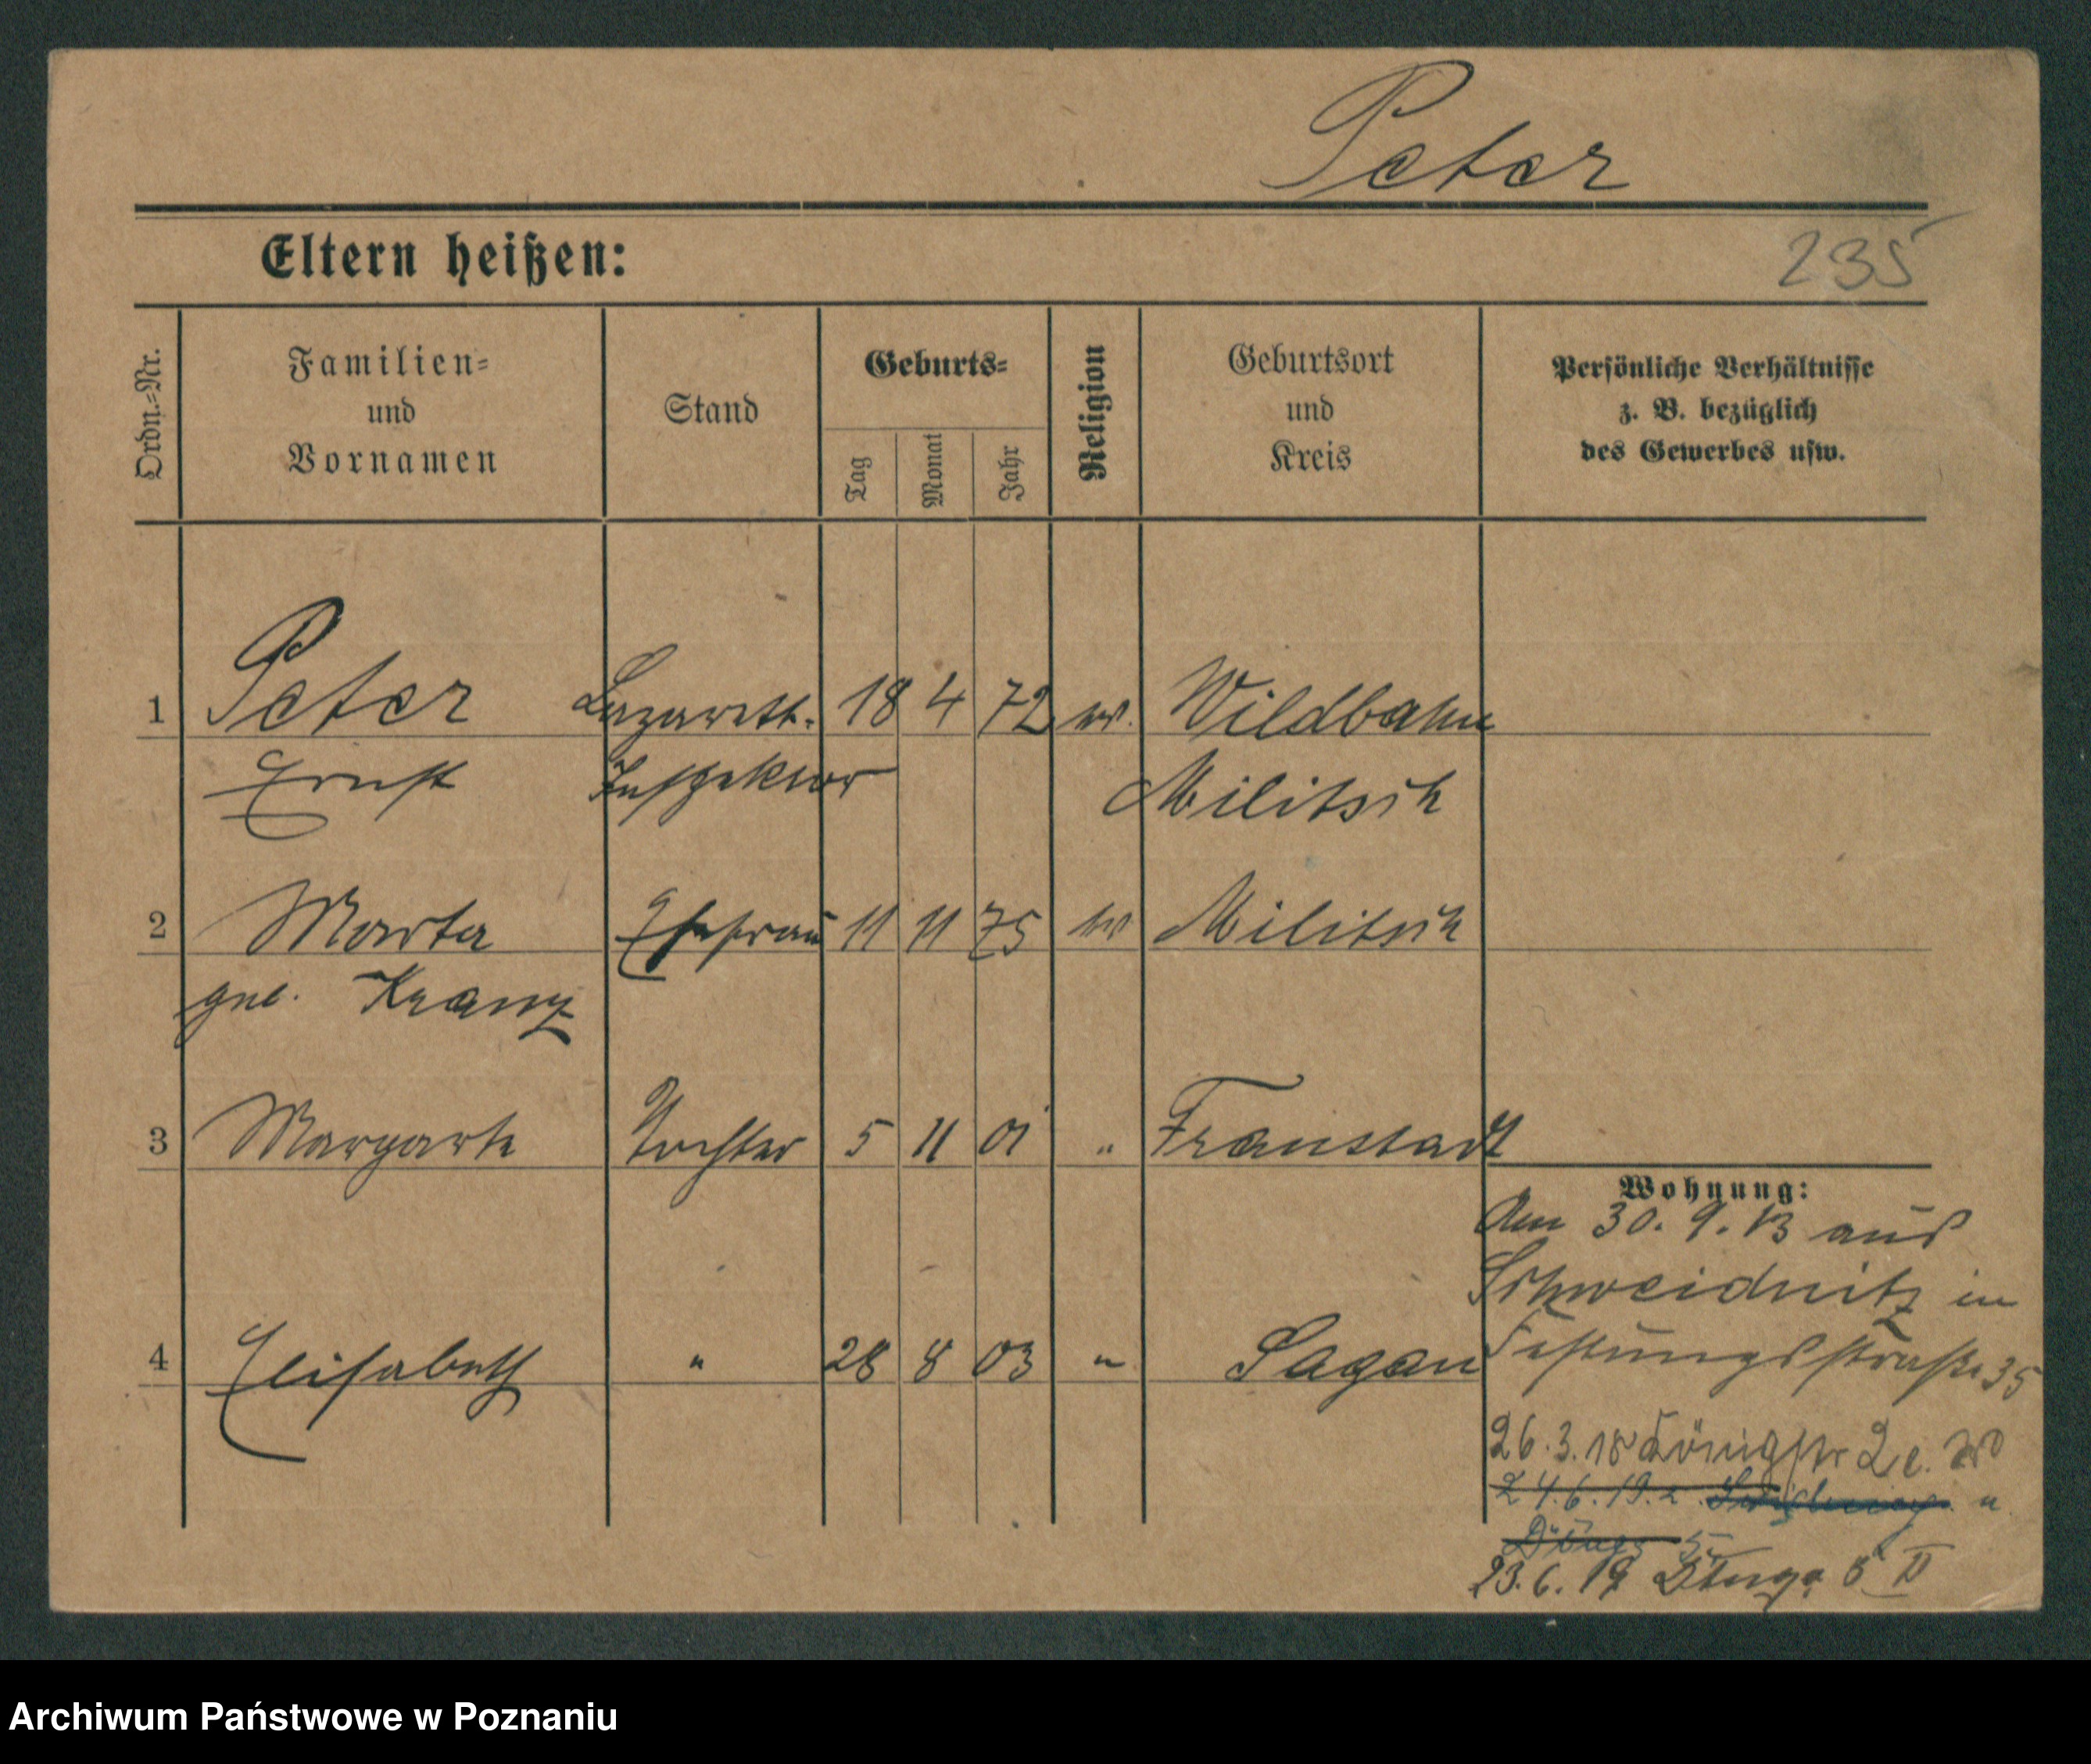 Peter
Eltern heißen:
235
Ordn.-Nr.
Familien-
und
Vornamen
Stand
Geburts-
Tag
Monat
Jahr
Religion
Geburtsort
und
Kreis
Persönliche Verhältnisse
z. B. bezüglich
des Gewerbes usw.
1 Peter Lazarett- 18 4 72 ev. Wildbahn
Ernst Inspektor Militsch
2 Marta Ehefrau 11 11 75 ev Militsch
geb. Kranz
3 Margarete Tochter 5 11 01 " Fraustadt
Wohnung:
Am 30. 9. 13 aus
Schweidnitz in
Festungsstraße 35
4 Elisabeth " 28 8 03 " Sagan
26. 3. 18 Königstr 2
24. 6. 19.
23. 6. 19 Długa 5 II
Archiwum Państwowe w Poznaniu